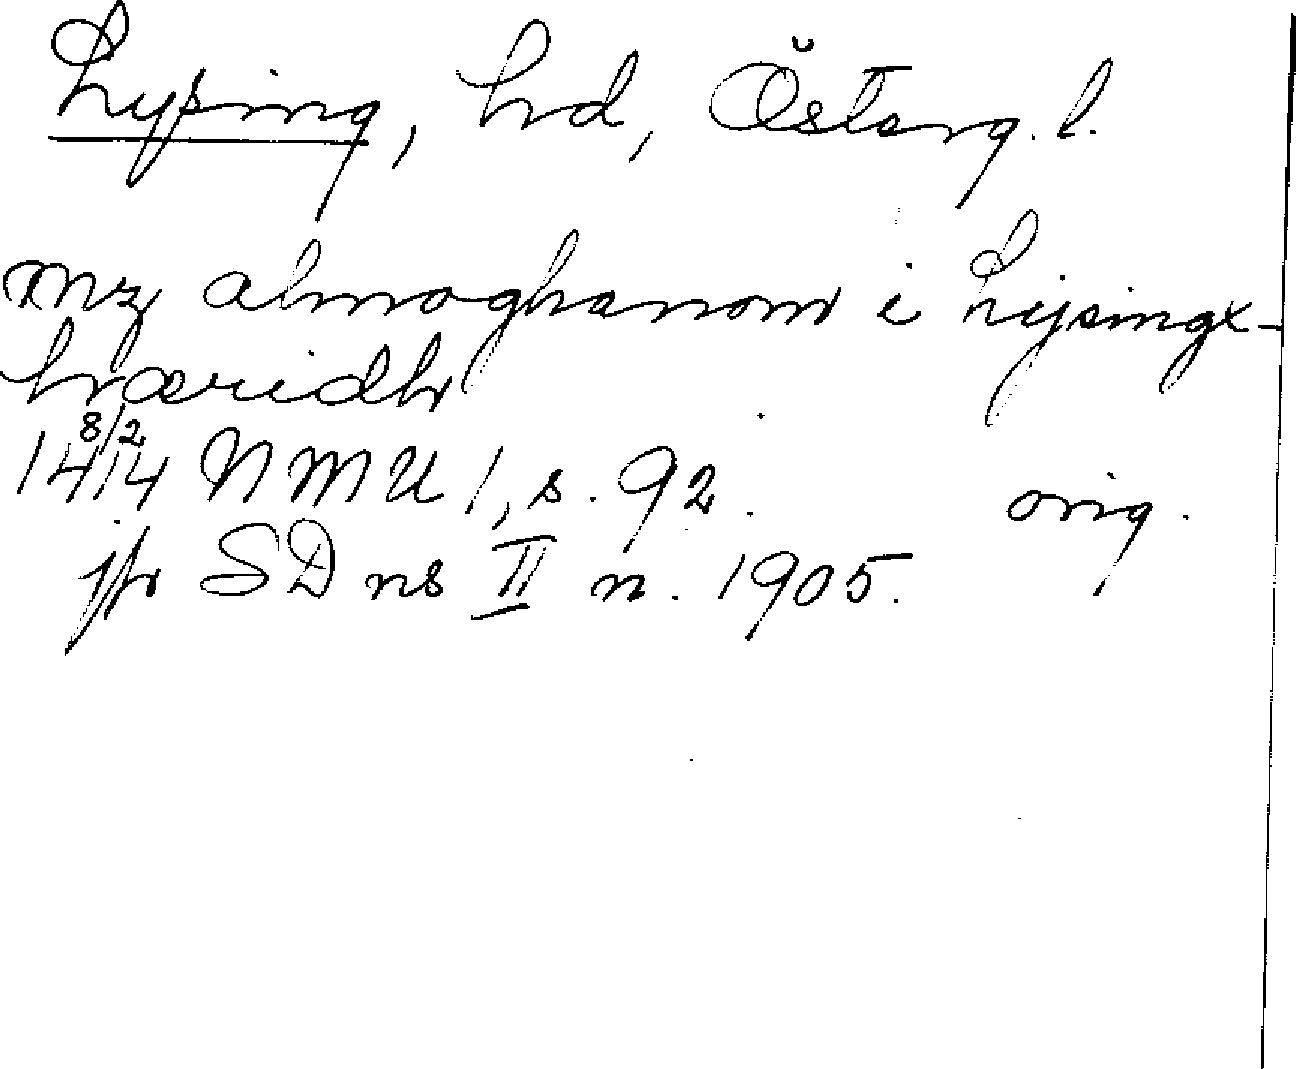 Lysing, hd, Österg. l.
mz almoghanom i Lysingx-
hæridh
1414 8/2 NMU 1, s. 92. orig.
jfr SD ns II n. 1905.